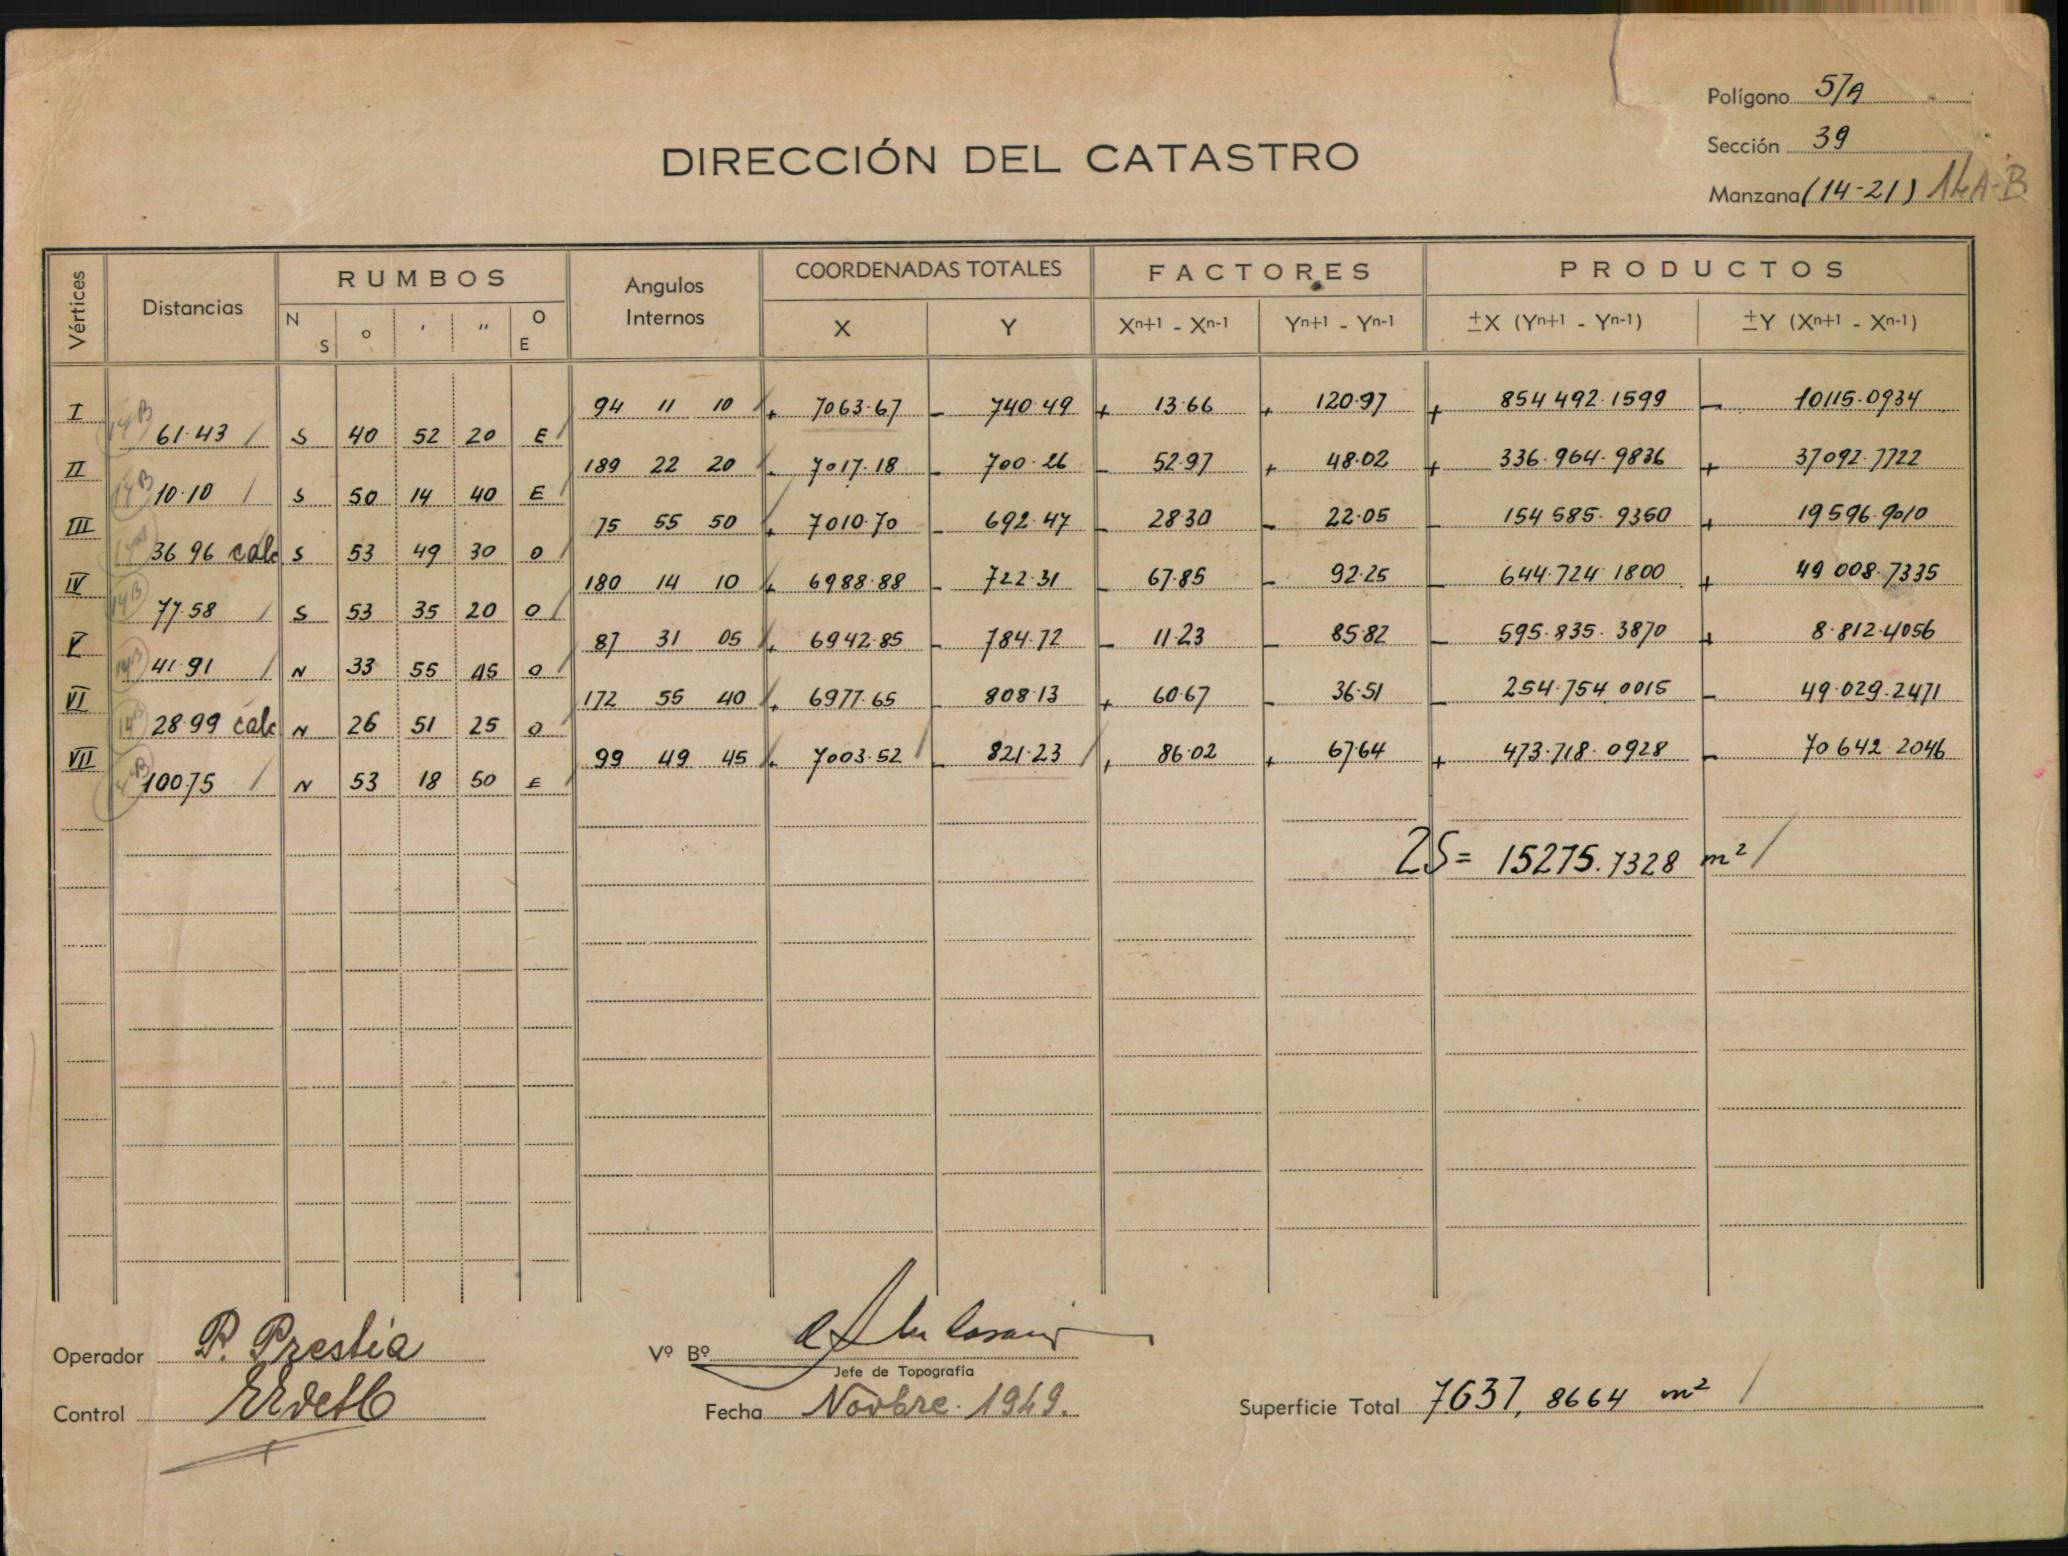 Polígono 57A
Sección 39
Manzana (14-21) 14A-B
DIRECCIÓN DEL CATASTRO
Vértices Distancias RUMBOS Angulos Internos COORDENADAS TOTALES FACTORES PRODUCTOS
N S o ' " O E X Y Xn+1 - Xn-1 Yn+1 - Yn-1 ±X (Yn+1 - Yn-1) ±Y (Xn+1 - Xn-1)
I 94 11 10 + 7063.67 - 740.49 + 13.66 + 120.97 + 854 492.1599 - 10115.0934
14B 61.43 S 40 52 20 E
II 189 22 20 + 7017.18 - 700.26 - 52.97 + 48.02 + 336.964.9836 + 37092.7722
14B 10.10 S 50 14 40 E
III 75 55 50 + 7010.70 - 692.47 - 28.30 - 22.05 - 154 585.9350 + 19596.9010
36 96 calc S 53 49 30 O
IV 180 14 10 + 6988.88 - 722.31 - 67.85 - 92.25 - 644.724 1800 + 49 008.7335
14B 77.58 S 53 35 20 O
V 87 31 05 + 6942.85 - 784.72 - 11.23 - 85.82 - 595.835.3870 + 8.812.4056
14B 41.91 N 33 55 45 O
VI 172 55 40 + 6977.65 - 808.13 + 60.67 - 36.51 - 254.754 0015 - 49.029.2471
14B 28.99 calc N 26 51 25 O
VII 99 49 45 + 7003.52 - 821.23 + 86.02 + 67.64 + 473.718.0928 - 70 642.2046
14B 100.75 N 53 18 50 E
2S= 15275.7328 m²
Operador P. Prestia
Vº Bº
Jefe de Topografía
Control
Fecha Novbre. 1949.
Superficie Total 7637,8664 m²